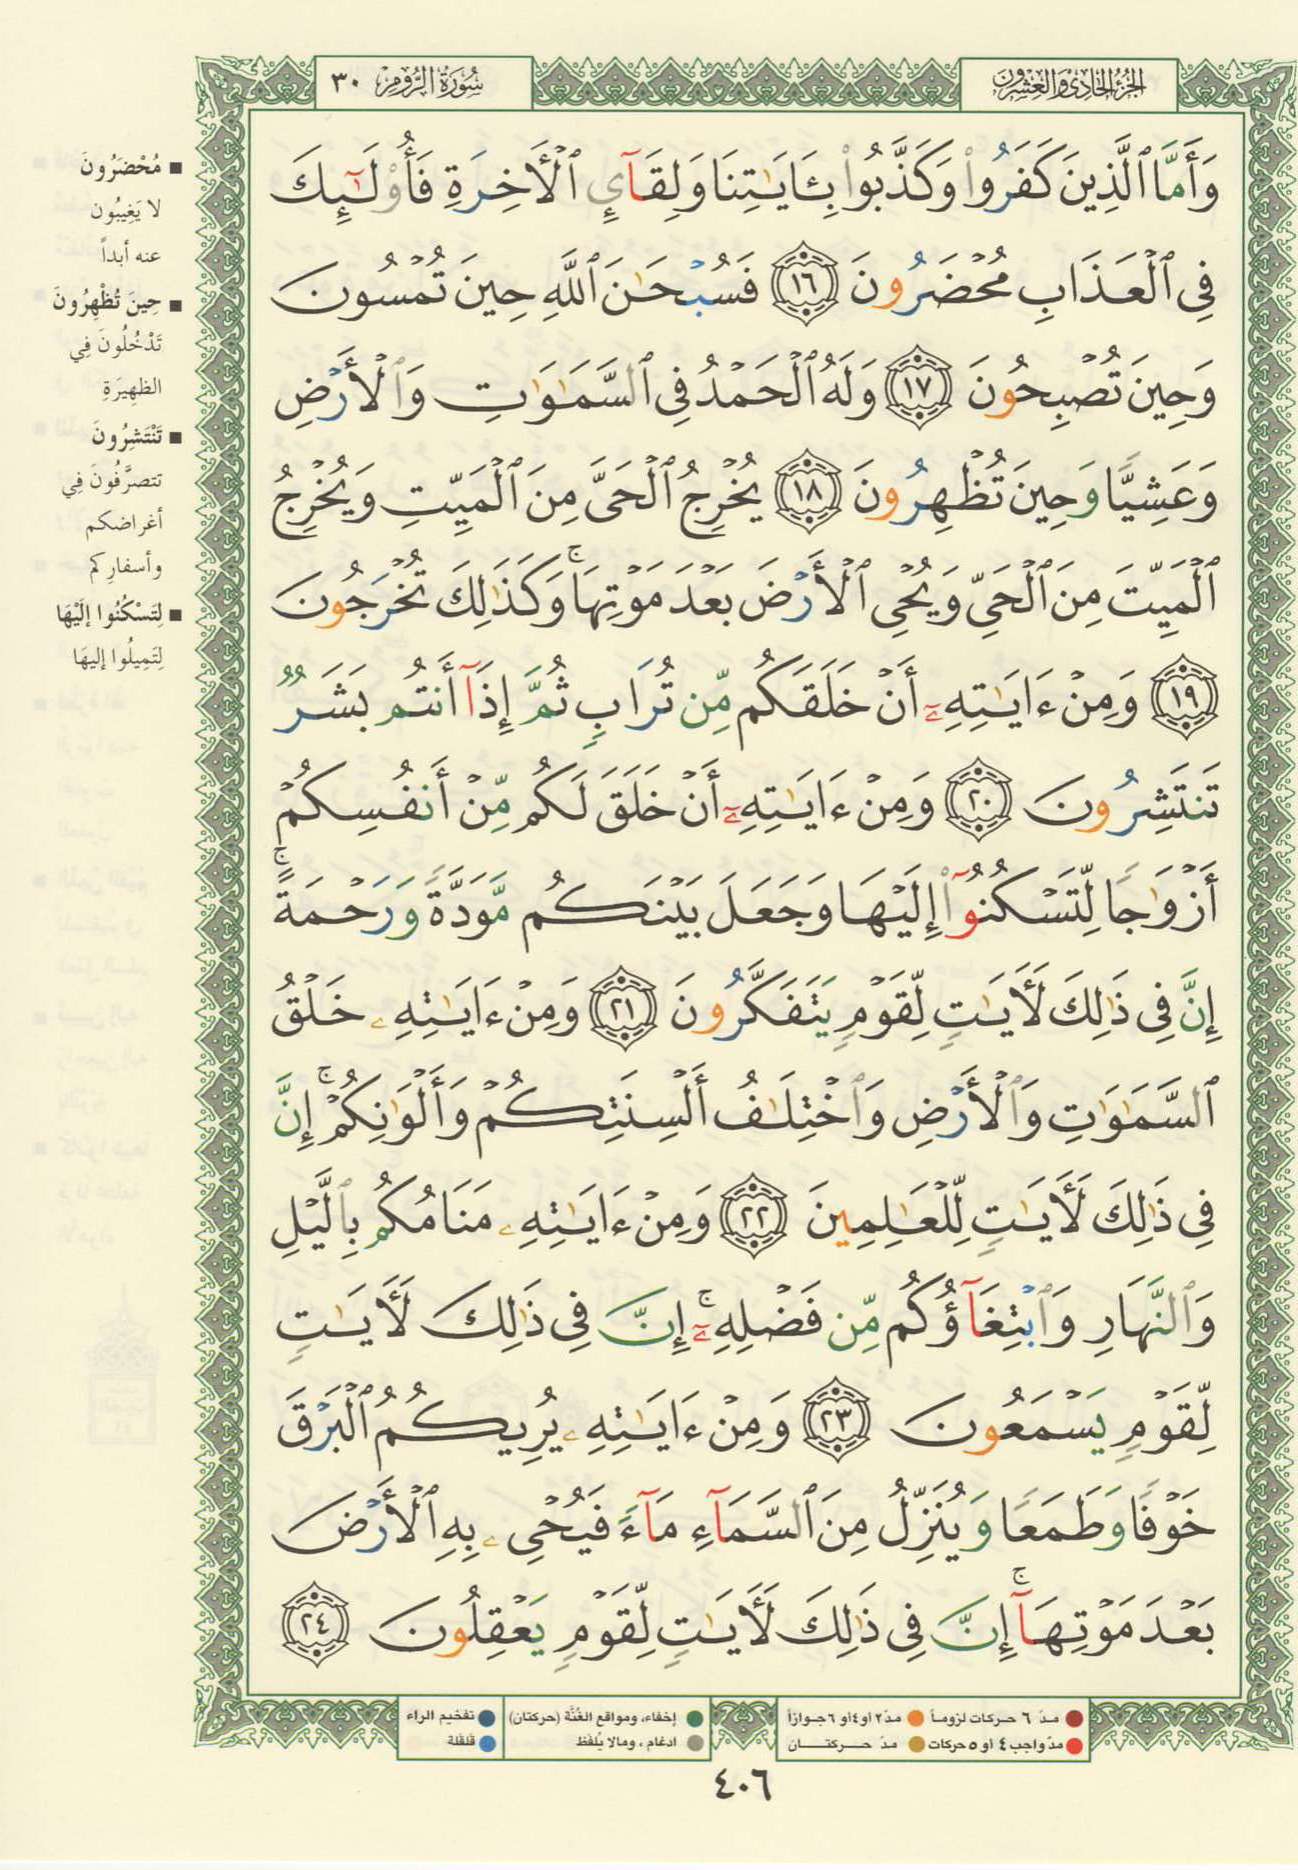 الجزء الحادي والعشرون
سورة الروم ٣٠
وَأَمَّا ٱلَّذِينَ كَفَرُوا۟ وَكَذَّبُوا۟ بِـَٔايَـٰتِنَا وَلِقَآئِ ٱلْأَخِرَةِ فَأُو۟لَـٰٓئِكَ
فِى ٱلْعَذَابِ مُحْضَرُونَ ١٦ فَسُبْحَـٰنَ ٱللَّهِ حِينَ تُمْسُونَ
وَحِينَ تُصْبِحُونَ ١٧ وَلَهُ ٱلْحَمْدُ فِى ٱلسَّمَـٰوَٰتِ وَٱلْأَرْضِ
وَعَشِيًّا وَحِينَ تُظْهِرُونَ ١٨ يُخْرِجُ ٱلْحَىَّ مِنَ ٱلْمَيِّتِ وَيُخْرِجُ
ٱلْمَيِّتَ مِنَ ٱلْحَىِّ وَيُحْىِ ٱلْأَرْضَ بَعْدَ مَوْتِهَا ۚ وَكَذَٰلِكَ تُخْرَجُونَ
١٩ وَمِنْ ءَايَـٰتِهِۦٓ أَنْ خَلَقَكُم مِّن تُرَابٍ ثُمَّ إِذَآ أَنتُم بَشَرٌ
تَنتَشِرُونَ ٢٠ وَمِنْ ءَايَـٰتِهِۦٓ أَنْ خَلَقَ لَكُم مِّنْ أَنفُسِكُمْ
أَزْوَٰجًا لِّتَسْكُنُوٓا۟ إِلَيْهَا وَجَعَلَ بَيْنَكُم مَّوَدَّةً وَرَحْمَةً ۚ
إِنَّ فِى ذَٰلِكَ لَـَٔايَـٰتٍ لِّقَوْمٍ يَتَفَكَّرُونَ ٢١ وَمِنْ ءَايَـٰتِهِۦ خَلْقُ
ٱلسَّمَـٰوَٰتِ وَٱلْأَرْضِ وَٱخْتِلَـٰفُ أَلْسِنَتِكُمْ وَأَلْوَٰنِكُمْ ۚ إِنَّ
فِى ذَٰلِكَ لَـَٔايَـٰتٍ لِّلْعَـٰلِمِينَ ٢٢ وَمِنْ ءَايَـٰتِهِۦ مَنَامُكُم بِٱلَّيْلِ
وَٱلنَّهَارِ وَٱبْتِغَآؤُكُم مِّن فَضْلِهِۦٓ ۚ إِنَّ فِى ذَٰلِكَ لَـَٔايَـٰتٍ
لِّقَوْمٍ يَسْمَعُونَ ٢٣ وَمِنْ ءَايَـٰتِهِۦ يُرِيكُمُ ٱلْبَرْقَ
خَوْفًا وَطَمَعًا وَيُنَزِّلُ مِنَ ٱلسَّمَآءِ مَآءً فَيُحْىِۦ بِهِ ٱلْأَرْضَ
بَعْدَ مَوْتِهَآ ۚ إِنَّ فِى ذَٰلِكَ لَـَٔايَـٰتٍ لِّقَوْمٍ يَعْقِلُونَ ٢٤
■ مُحْضَرُونَ
لا يَغِيبُون
عنه أبداً
■ حِينَ تُظْهِرُونَ
تَدْخُلُونَ فِي
الظهِيرَةِ
■ تَنْتَشِرُونَ
تتصرَّفُونَ فِي
أغراضكم
وأسفارِكم
■ لِتَسْكُنُوا إِلَيْهَا
لِتَمِيلُوا إليهَا
مدّ ٦ حركات لزوماً
مدّ ٢ أو ٤ أو ٦ جوازاً
مدّ واجب ٤ أو ٥ حركات
مدّ حركتان
إخفاء، ومواقع الغُنَّة (حركتان)
ادغام، ومالا يُلفَظ
تفخيم الراء
قلقلة
٤٠٦